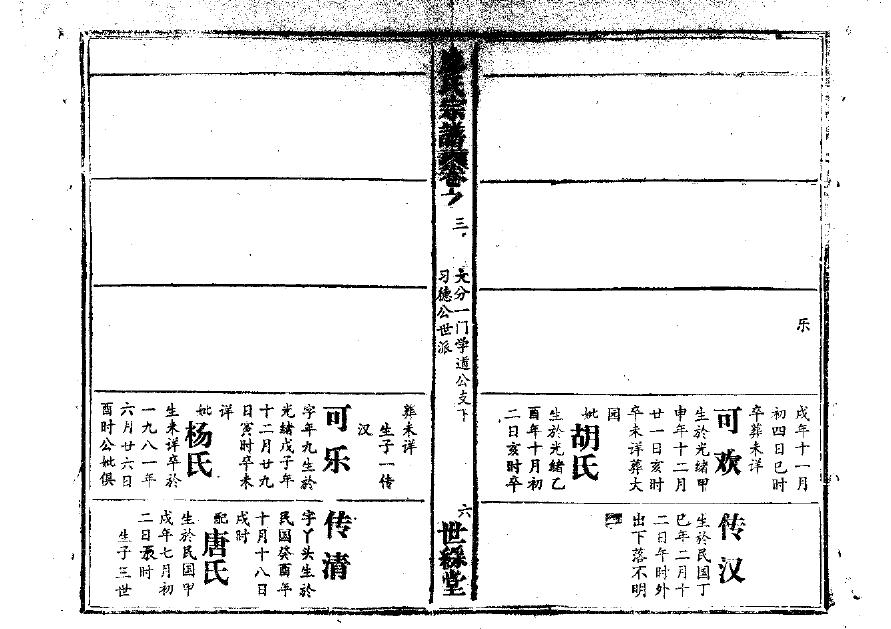 乐
戌年十一月
初四日巳时
卒葬未详
可欢
生於光绪甲
申年十二月
廿一日亥时
卒未详葬大
园
妣
胡氏
生於光绪乙
酉年十月初
二日亥时卒
传汉
生於民国丁
巳年二月十
二日午时外
出下落不明
氏宗谱卷之
三
长分一门学道公支下
习德公世派
六
世䌽堂
葬未详
生子一传
汉
可乐
字年九生於
光绪戊子年
十二月廿九
日寅时卒未
详
妣
杨氏
生未详卒於
一九八一年
六月廿六日
酉时公妣俱
传清
字丫头生於
民国癸酉年
十月十八日
戌时
配
唐氏
生於民国甲
戌年七月初
二日时
生子三世